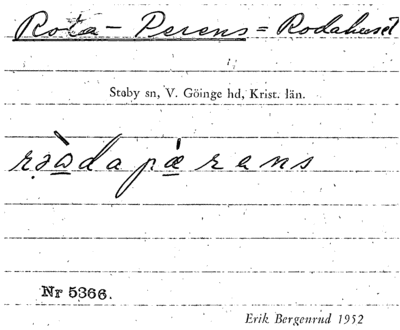 Rota - Perens = Rodahuset
Stoby sn, V. Göinge hd, Krist. län.
rəὼ̲dapæ̲̀rens
Nr 5366.
Erik Bergenrud 1952